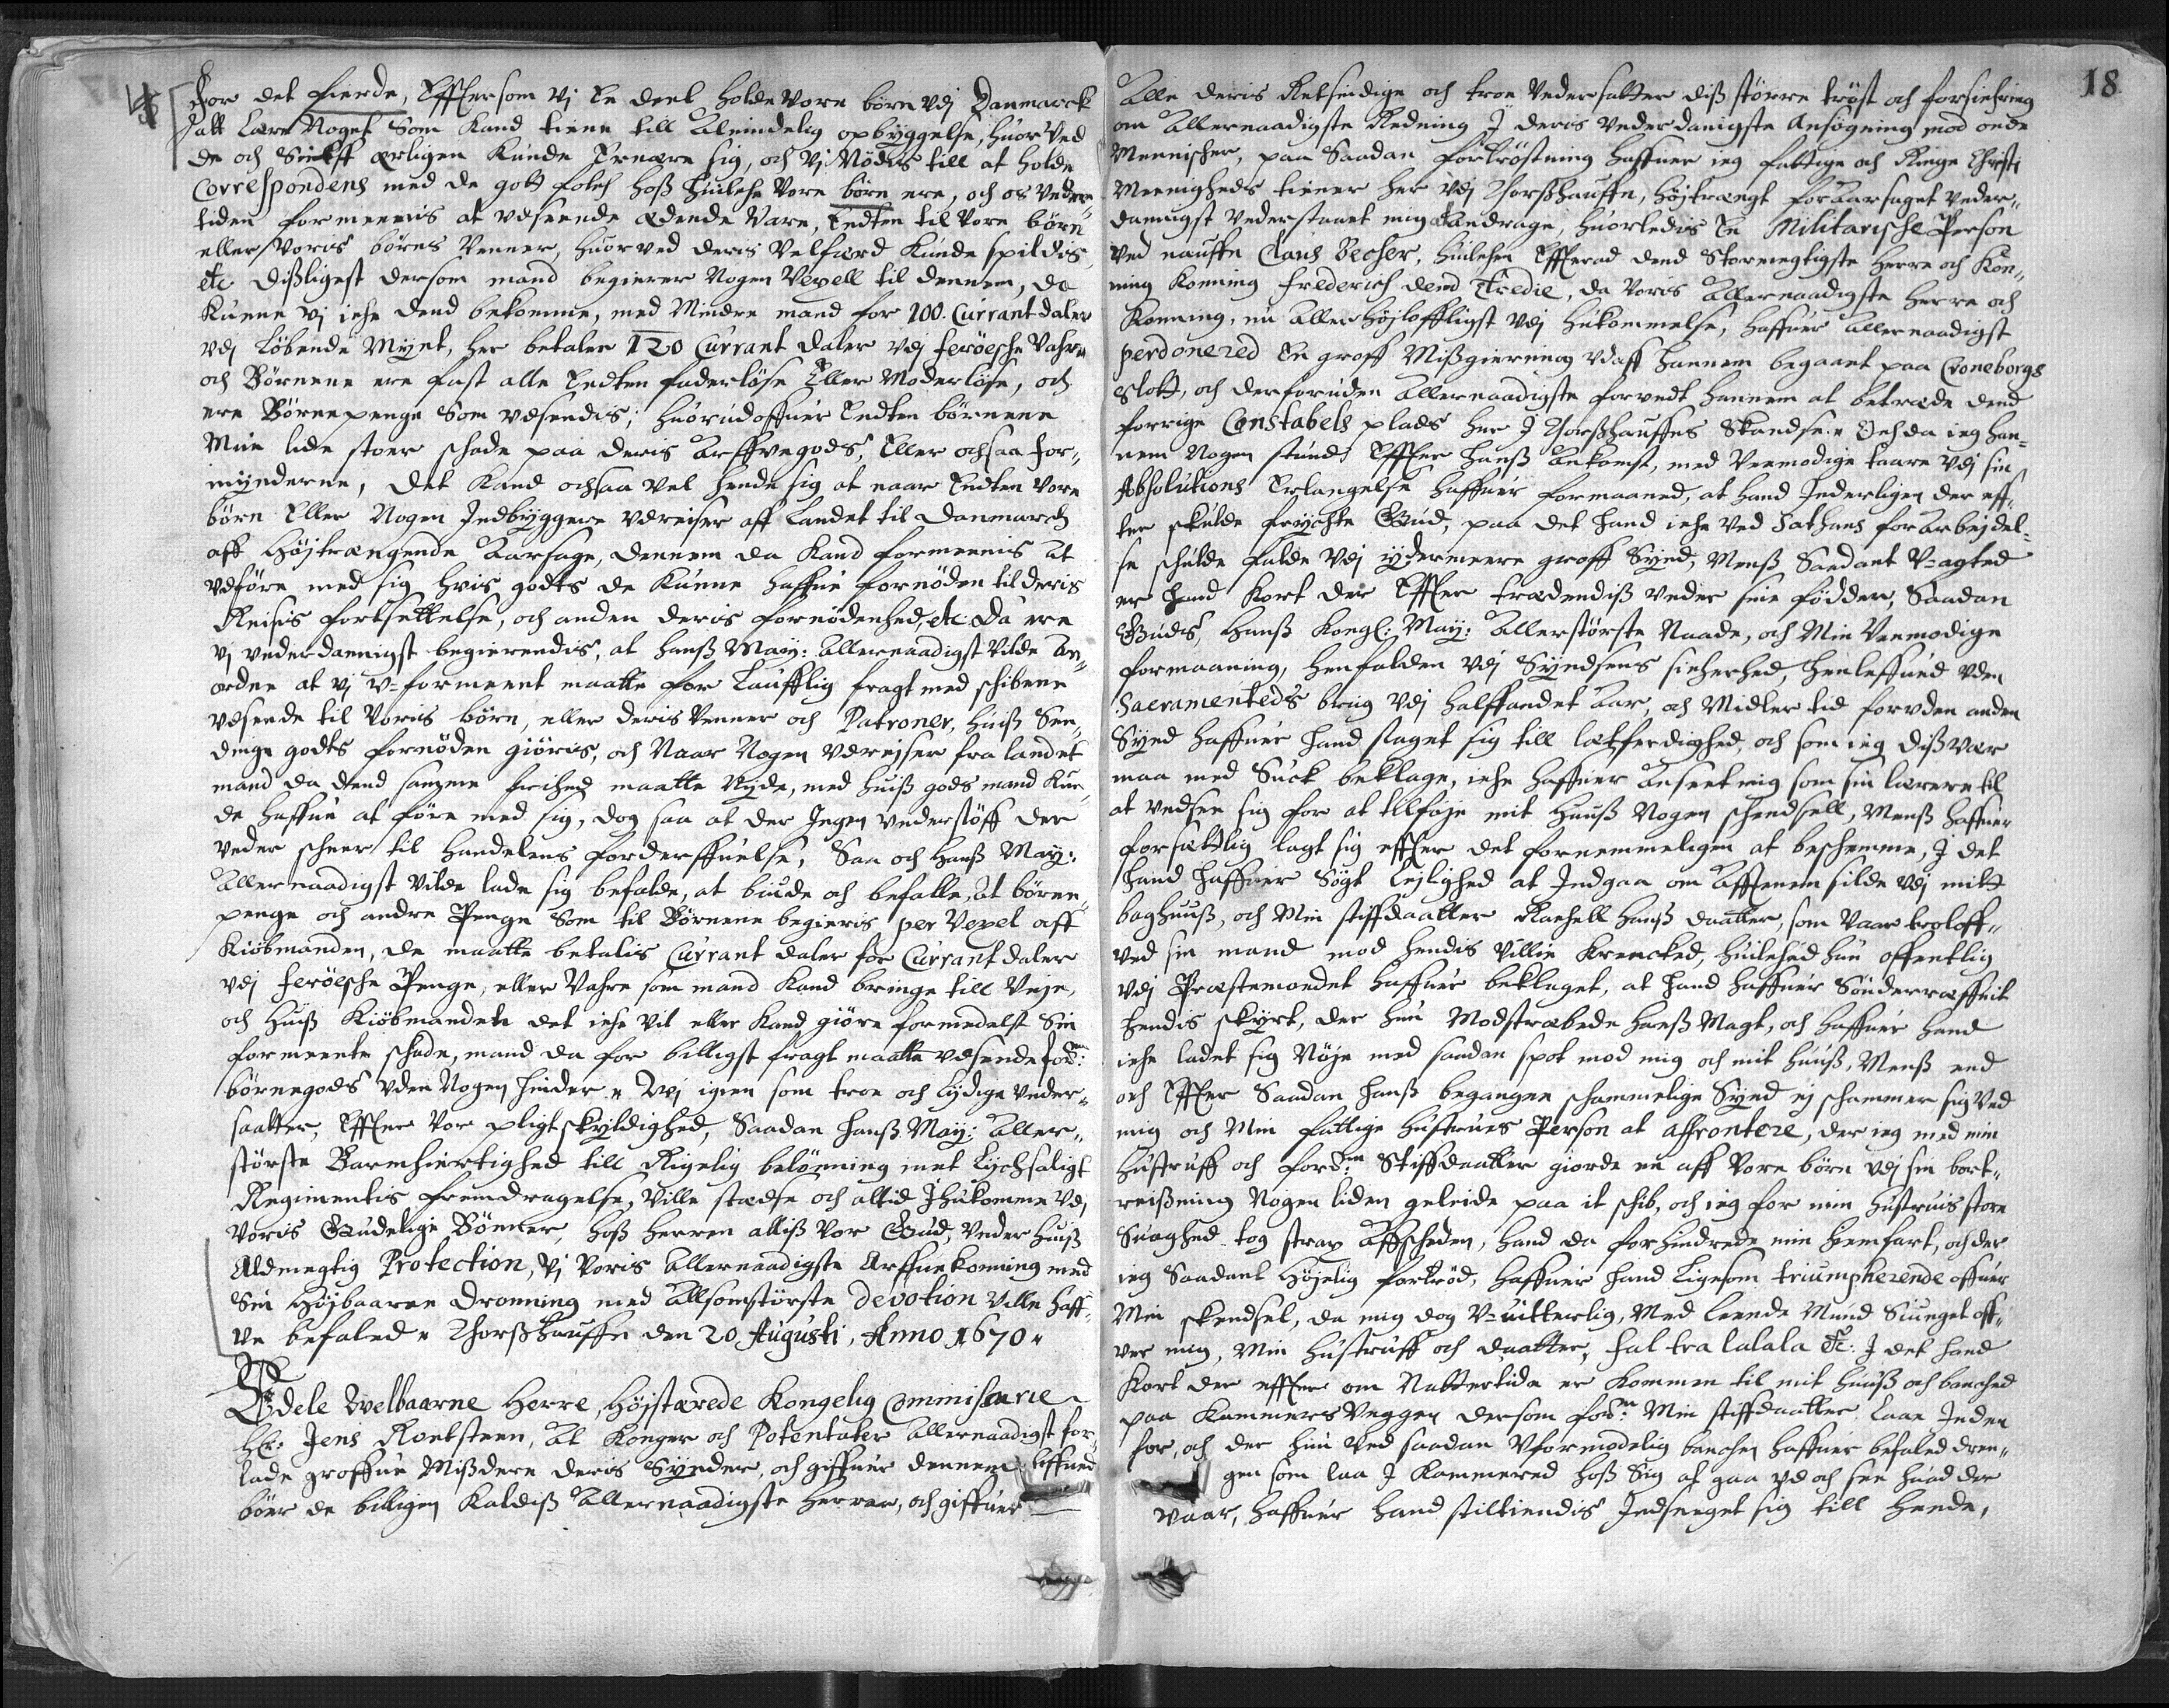 4
For det fierde, Effter som vj En deel holde vore børn vdj Danmarck
att lære Noget Som Kand tiene till Almindelig opbyggelse, huor ved
de och Sielff ærligen Kunde Ernære sig, och vj Nødis till at holde
Correspondens med de gott folch hoß huilche vore børn ere, och os veder-
tiden formeenis at vdsende ædende Vare, Endten til vore børn
eller voris børns venner, huor ved deris velfærd Kunde spildis
etc. dißligest dersom mand begierer Nogen Vexell til dennem, da
Kunne vj iche dend bekomme, med Mindre mand for 100. Currant daler
vdj Løbende Mynt, her betaler 120 Currant daler vdj ferøesche Vahre
och Børnene ere fast alle Endten faderløse Eller Moderløse, och
ere Børnepenge Som vdsendis; huorudoffuer Endten børnene
Mue lide stoer schade paa deris Arffvegods, Eller ochsaa for-
mynderne, det Kand ochsaa vel hende sig at naar Endten vore
børn Eller Nogen Indbyggere vdreiser aff Landet til Danmarch
aff høytrængende Aarsage, dennem da Kand formeenis At
vdføre med sig hvis godts de Kunne haffue fornøden til deris
Reisis fortsettelse, och anden deris fornødenhed, etc. Da ere
vj vnderdannigst begierendis, at Hanß May: Allernaadigst vilde An-
ordne at vj v-formeent maatte for Taufflig fragt med schibene
vdsende til Voris børn, eller deris Venner och Patroner, huiß Sen-
dinge godts fornøden giøris, och Naar Nogen vdreiser fra landet
mand da dend samme frihed maatte Nyde, med huiß gods mand Kun-
de haffue at føre med sig, dog saa at der Ingen vnderstøff der
vnder scheer til Handelens forderffuelse, Saa och Hanß May:
Allernaadigst vilde lade sig befalde, at biude och befalle, at børne-
penge och andre Penge Som til Børnene begieris per Vexel aff
Kiøbmanden, de maatte betalis Currant daler for Currant daler
vdj ferøesche Penge, eller Vahre som mand Kand bringe till Veje,
och huiß Kiøbmanden det iche vil eller Kand giøre formedelst Sin
formeente schade, mand da for billigst fragt maatte vdsende ford:ne
børnegods vden Nogen hinder. Wj igien som troe och lydige vnder-
saatter, Effter vor pligtskyldighed, Saadan Hanß May: Aller-
største Barmhiertighed till Rigelig belønning met Lychsaligt
Regimentis fremdragelse, ville stædse och altid Ihukomme vdj
Voris Gudelige Bønner, hoß Herren alliß vor Gud, vnder huiß
Aldmegtig Protection, vj Voris allernaadigste Arffuekonning med
Sin Høybaarne Dronning med Allsomstørste devotion ville haff-
ve befaled. Thorßhauffn den 20 Augusti, Anno 1670.
Edele Welbaarne Herre, Højstærede Kongelig Commissarie
Hr: Jens Roetsteen, At Konger och Potentater allernaadigst for-
lade groffue Mißdere deris Synder, och giffuer dennem Liffued
bør de billigen Kaldiß Allernaadigste Herrer, och giffuer
18
Alle deris Retferdige och troe Vndersatter diß større trøst och forsichring
om Allernaadigste Redning I deris Vnderdanigste Ansøgning mod onde
Mennischer, paa Saadan fortrøstning haffuer ieg fattige och Ringe Christi
Meenigheds tiener her vdj Thorßhauffn, høytrængt foraarsaget vnder-
danigst Vnderstaaet mig Andrage, huorledis En Militarische Person
ved naffn Claus Becher, huilchen Effterad dend Stormegtigste Herre och Kon-
ning Konning Frederich dend Tredie, da Voris Allernaadigste Herre och
Konning, nu aller Højloffligst vdj hukommelse, haffuer Allernaadigst
perdonered En groff Mißgierning vdaff hannem begaaet paa Croneborgs
Slott, och derforuden Allernaadigste forundt hannem at betræde dend
forrige Constabels plads her I Thorßhauffns Skandse. Och da ieg han-
nem Nogen stund Effter Hanß Ankomst, med Veemodige taare vdj sin
Absolutions Erlangelse haffuer formaaned, at hand Inderligen der eff-
ter skulde frychte Gud, paa det Hand iche ved Sathans forarbejdel-
se schulde falde vdj ydermeere groff Synd, Menß Saadant V-agted
er Hand Kort der Effter trædendiß vnder sine fødder, Saadan
Guds, Hanß Kongl: May: Allerstørste Naade, och Min Veemodige
formaaning, henfalden vdj Syndsens sicherhed, henleffued vden
Sacramenteds brug vdj Halffandet Aar, och Midler tid foruden anden
Synd haffuer Hand slaget sig till letferdighed, och som ieg dißvær
maa med Suck beklage, iche haffuer Anseet mig som sin lærere til
at vndsee sig for at tilføje mit Huuß Nogen schendsell, Menß haffuer
forsættlig lagt sig effter det fornemmeligen at beschemme, I det
Hand haffuer Søgt Lejlighed at Indgaa om Afftenen silde vdj mitt
baghuuß, och Min stiffdaatter Rachell Hanß daatter, som vaar troloff-
ved sin mand mod hendis Villie Krencked, huilched hun offentlig
vdj Præstemøedet haffuer beklaget, at Hand haffuer Sønderræffuit
hendis skyrt, der hun Modstræbede Hanß Magt, och haffuer Hand
iche ladet sig Nøje med saadan spot mod mig och mit huuß, Menß end
och Effter Saadan Hanß begangne schammelige Synd ej schammer sig ved
mig och Min fattige Hustrues Person at affrontere, der ieg med min
Hustruff och ford:ne Stiffdaatter giorde en aff vore børn vdj sin bort-
reißning Nogen liden geleide paa it schib, och ieg for min Hustruis store
Suaghed tog strax Affscheden, Hand da forhindrede min hiemfart, och der
ieg Saadant Høyelig fortrød, haffuer Hand Ligesom triumpherende offuer
Min skendsel, da mig dog V-uitterlig, Med leende Mund Siunget off-
ver mig, Min Hustruff och daatter, fal tra lalala &c: I det Hand
Kort der effter om Nattertide er Kommen til mit Huuß och bancked
paa Kammers Veggen dersom ford:ne Min stiffdaatter laae Inden
for, och der hun ved saadan Vformodelig banchen haffuer befaled dren-
gen som laa I Kammered hoß Sig at gaa vd och see huad der
vaar, haffuer Hand stiltiendis Indsneget sig till Hende,